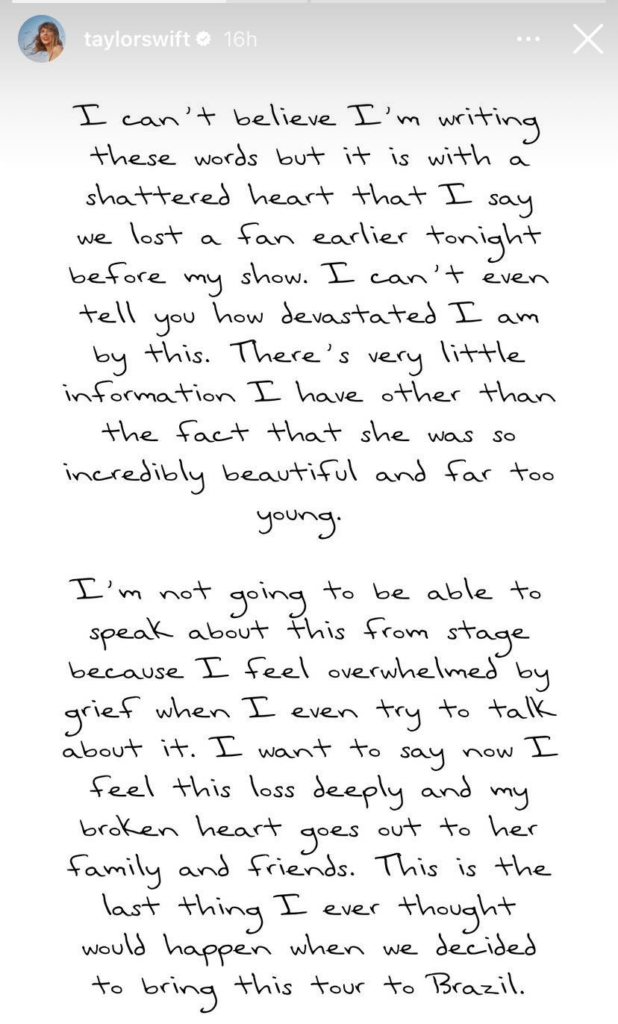 taylorswift 16h
I can't believe I'm writing
these words but it is with a
shattered heart that I say
we lost a fan earlier tonight
before my show. I can't even
tell you how devastated I am
by this. There's very little
information I have other than
the fact that she was so
incredibly beautiful and far too
young.
I'm not going to be able to
speak about this from stage
because I feel overwhelmed by
grief when I even try to talk
about it. I want to say now I
feel this loss deeply and my
broken heart goes out to her
family and friends. This is the
last thing I ever thought
would happen when we decided
to bring this tour to Brazil.